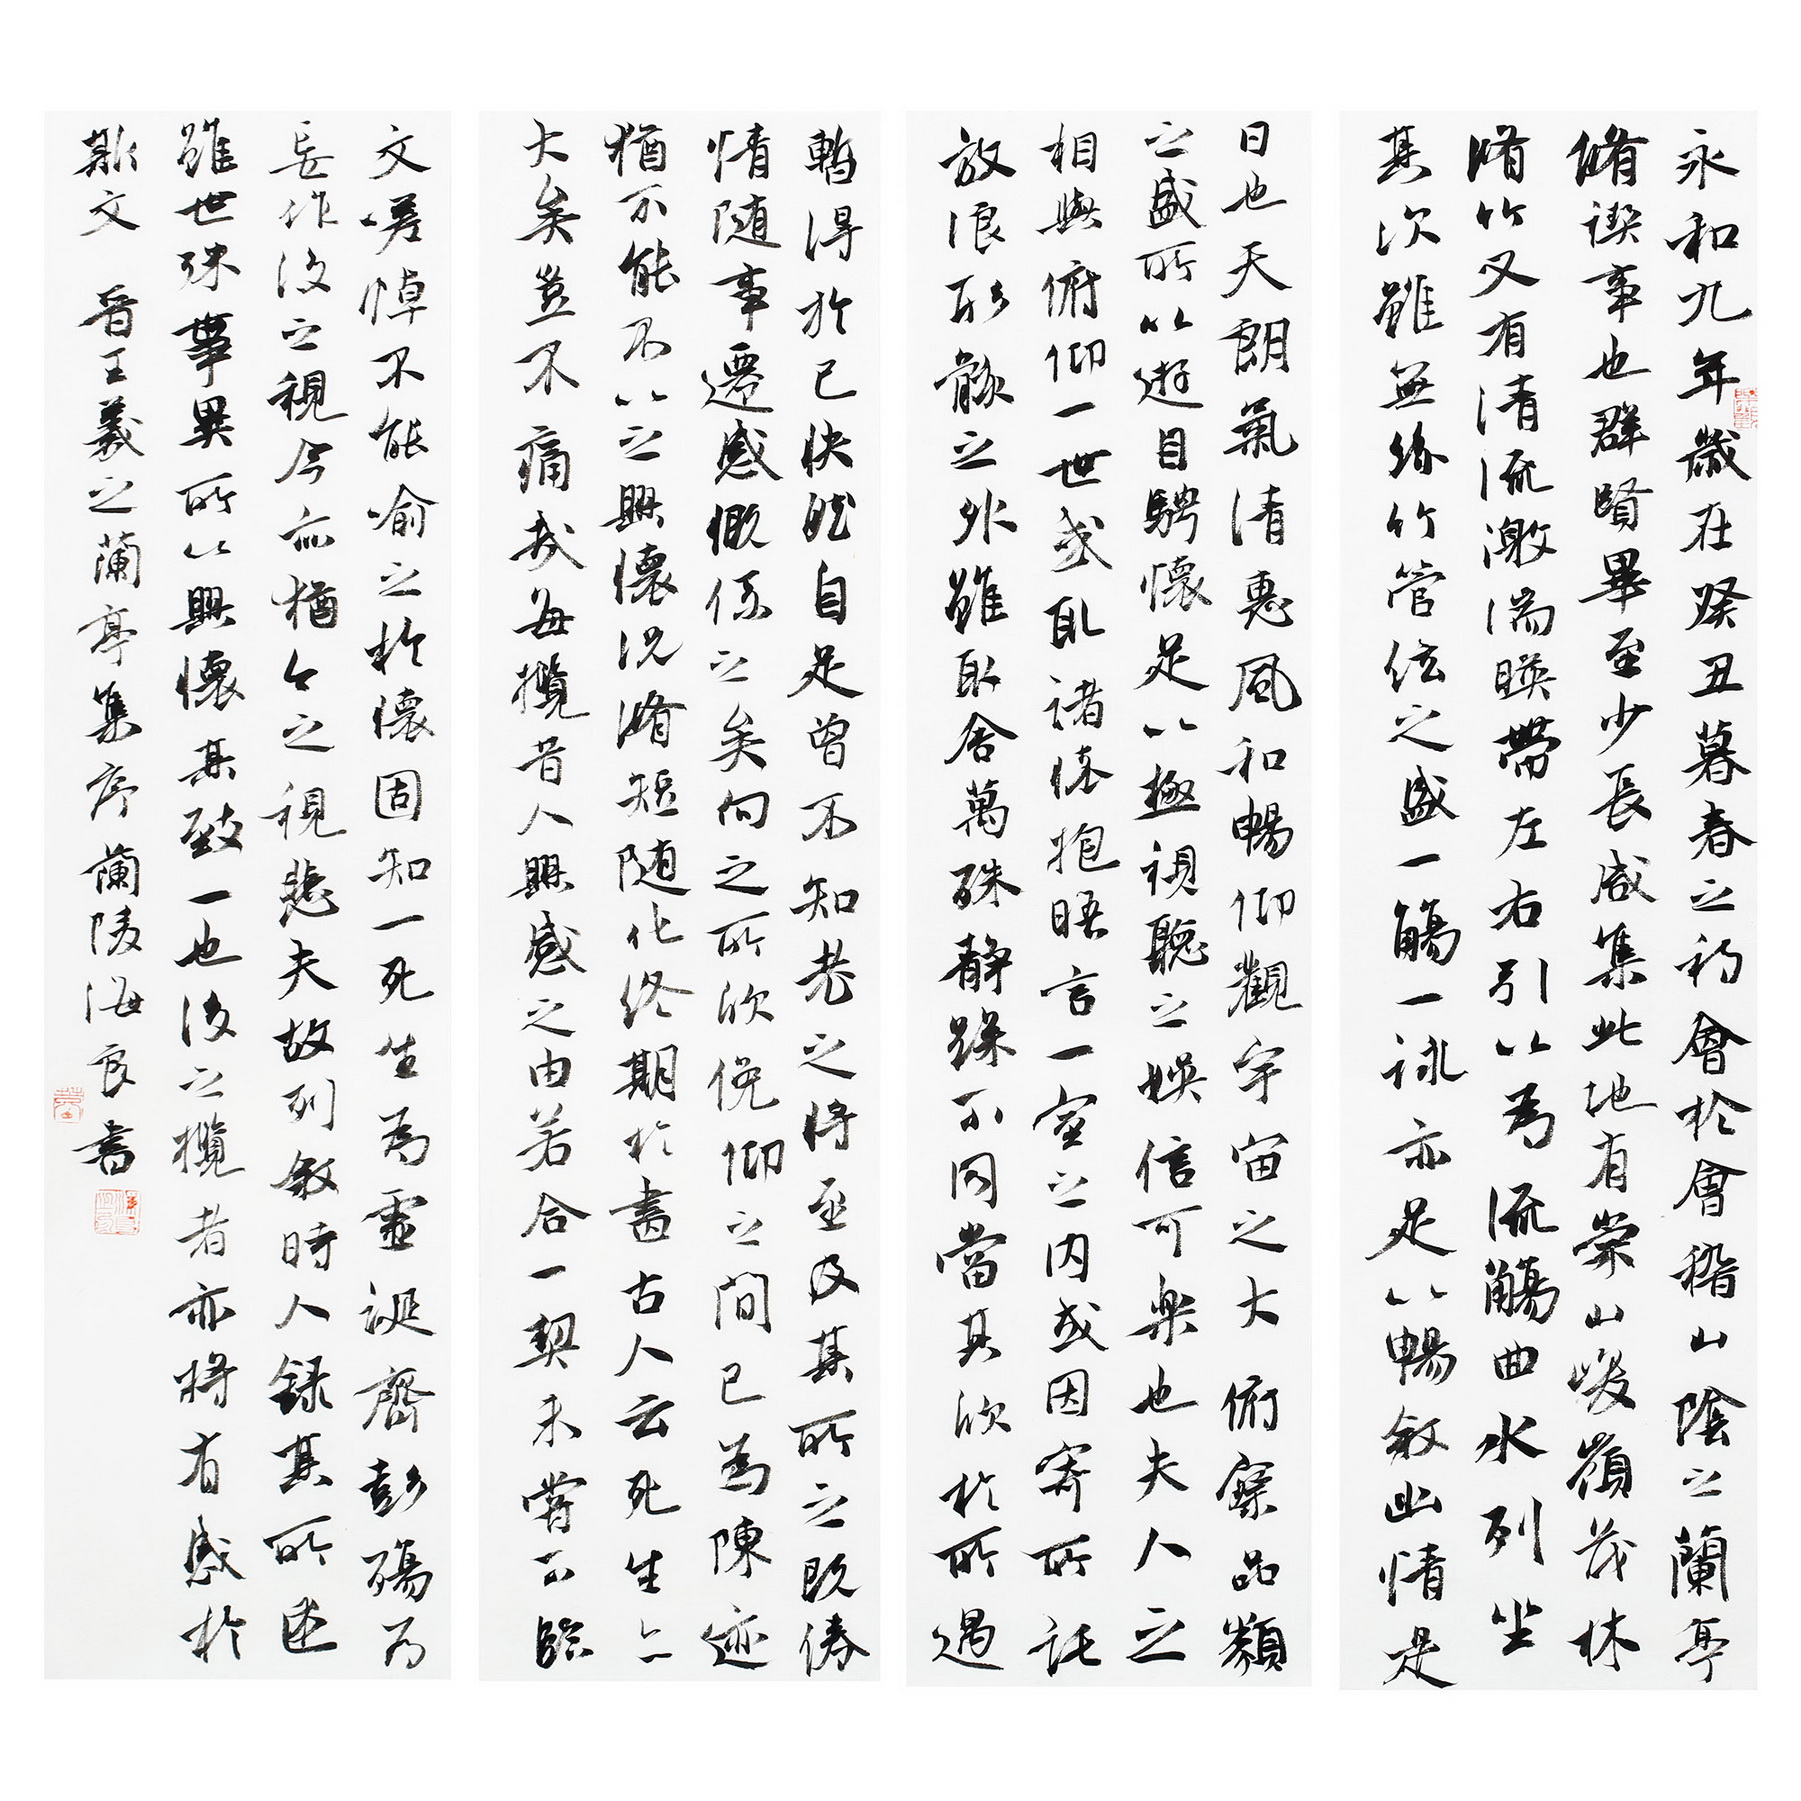 永和九年歲在癸丑暮春之初會於會稽山陰之蘭亭
脩禊事也群賢畢至少長咸集此地有崇山峻嶺茂林
脩竹又有清流激湍暎帶左右引以為流觴曲水列坐
其次雖無絲竹管弦之盛一觴一詠亦足以暢敘幽情是
日也天朗氣清惠風和暢仰觀宇宙之大俯察品類
之盛所以遊目騁懷足以極視聽之娛信可樂也夫人之
相與俯仰一世或取諸懷抱晤言一室之內或因寄所託
放浪形骸之外雖取舍萬殊靜躁不同當其欣於所遇
暫得於己快然自足曾不知老之將至及其所之既倦
情隨事遷感慨係之矣向之所欣俛仰之間已為陳迹
猶不能不以之興懷況脩短隨化終期於盡古人云死生亦
大矣豈不痛哉每攬昔人興感之由若合一契未嘗不臨
文嗟悼不能喻之於懷固知一死生為虛誕齊彭殤為
妄作後之視今亦猶今之視昔悲夫故列敘時人錄其所述
雖世殊事異所以興懷其致一也後之攬者亦將有感於
斯文 晉王羲之蘭亭集序蘭陵海良書